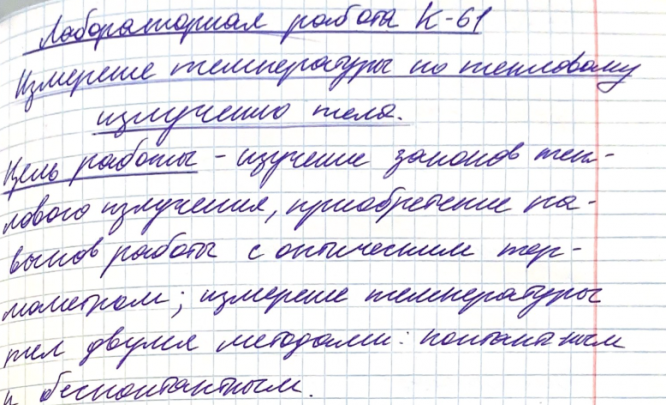 Лабораторная работа К-61
Измерение температуры по тепловому
излучению тела.
Цель работы - изучение законов теп-
лового излучения, приобретение на-
выков работы с оптическим тер-
мометром; измерение температуры
тел двумя методами: контактным
и бесконтактным.